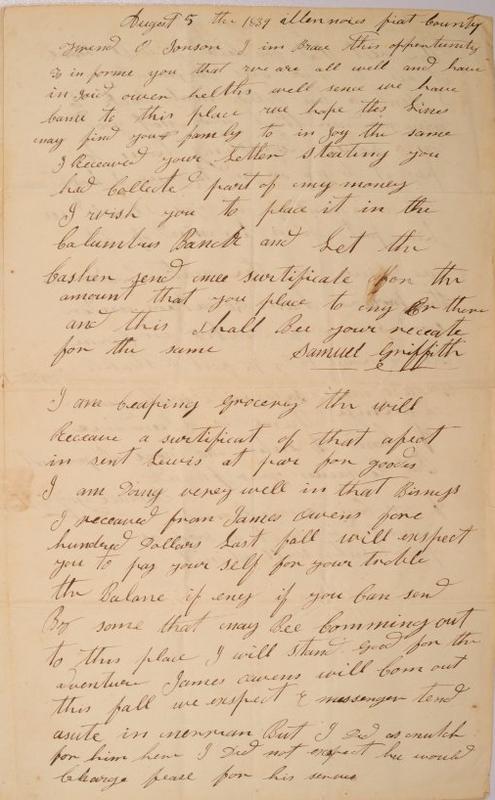 August 5 the 1839 allennoies piat County
Friend O Jonson I im Brace this oppertunity
to in forme you that we are all well and have
in Joid owen helths well senc we have
came to this place we hope thes Lines
may find your family to in Joy the same
I Receaved your Letter stateing you
had Collected part of my money
I wish you to place it in the
Calumbus Banck and Let the
Casher send mee surtificate for the
amount that you place to my Cr there
and this shall Bee your receate
for the same Samuel Griffith
I am Ceaping Grocery the will
Receave a surtificat of that
in sent Lewis at par for goods
I am Doing verey well in that Bisness
I receaved from James Owens fore
hundred Dollars Last fall will exspect
you to pay your self for your troble
the balane if eney if you Can send
By some that may Bee Comming out
to this place I will stand good for the
aventure James Owens will Com out
this fall we exspect messenger tend
But I Did as mutch
for him here I Did not exspect he would
Charge for his